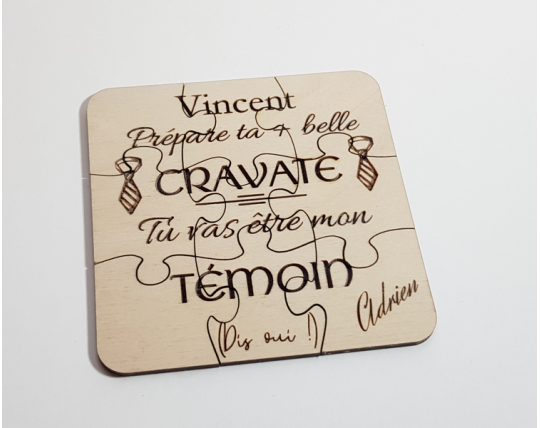 Vincent
Prépare ta + belle
CRAVATE
Tu vas être mon
TÉMOIN
(Dis oui !)
Adrien